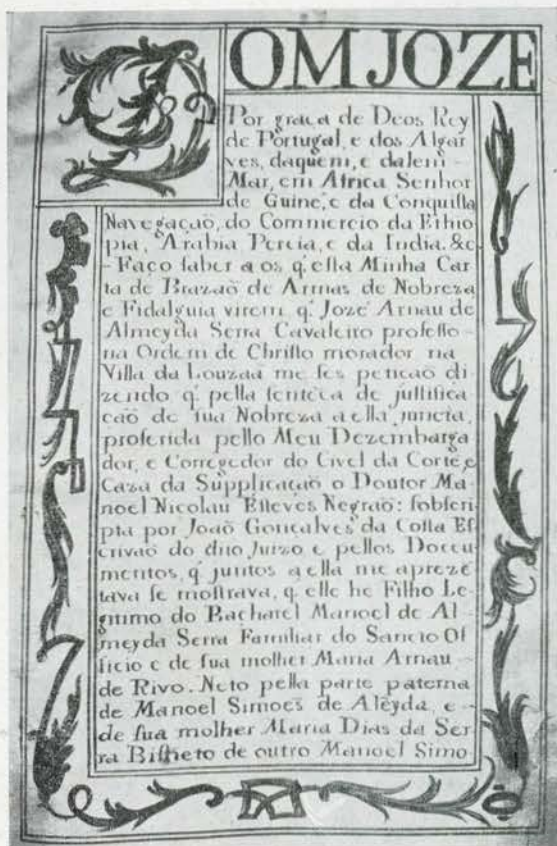 DOM JOZE
Por graca de Deos Rey
de Portugal, e dos Algar
ves, daquem, e dalem -
Mar, em Africa Senhor
de Guine, e da Conquista
Navegação, do Commercio da Ethio
pia, Arabia Percia, e da India. &c
- Faço saber a os q' esta Minha Car
ta de Brazaõ de Armas de Nobreza
e Fidalguia virem q' Jozé Arnau de
Almeyda Serra Cavaleiro professo -
na Ordem de Christo morador na
Villa da Louzaã me fes peticaõ di
zendo q' pella sentẽca de justifica
caõ de sua Nobreza a ella juncta,
proferida pello Meu Dezembarga
dor, e Corregedor do Civel da Corte, e
Caza da Supplicaçaõ o Doutor Ma
noel Nicolau Esteves Negraõ: sobscri
pta por Joaõ Gonçalves da Costa Es
crivaõ do dito Juizo e pellos Doccu
mentos, q' juntos a ella me aprezẽ
tava se mostrava, q elle he Filho Le
gitimo do Bacharel Manoel de Al
meyda Serra Familiar do Sancto Of
ficio e de sua molher Maria Arnau -
de Rivo. Neto pella parte paterna
de Manoel Simoes de Alẽyda, e -
de sua molher Maria Dias da Ser
ra Bisneto de outro Manoel Simo